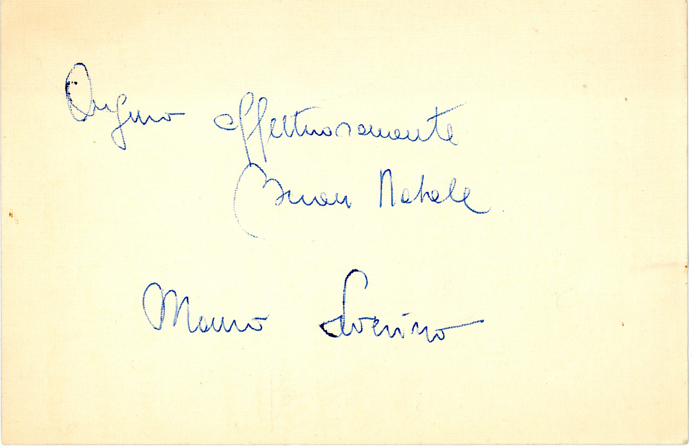 Auguro affettuosamente
Buon Natale
Mauro Severino